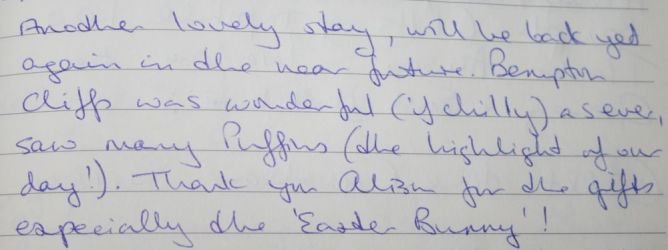 Another lovely stay, will be back yet
again in the near future. Bempton
Cliffs was wonderful (if chilly) as ever,
saw many Puffins (the highlight of our
day!). Thank you Alison for the gifts
especially the 'Easter Bunny'!